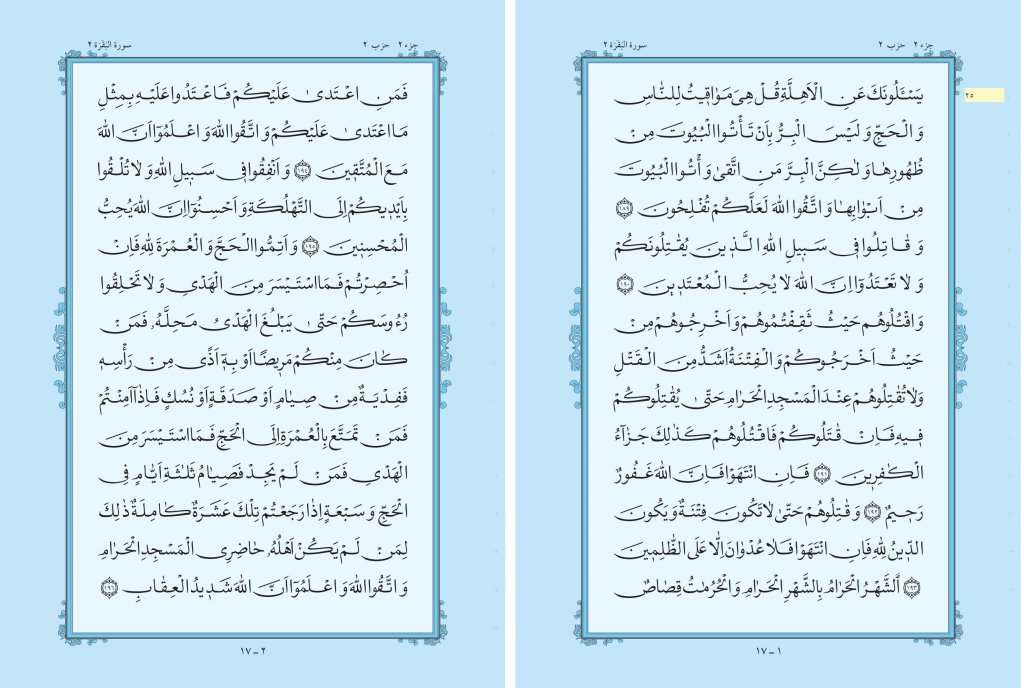 جزء ٢ حزب ٢ سورة البَقَرَة ٢
٢٥
يَسْـَٔلُونَكَ عَنِ الْاَهِلَّةِ قُلْ هِىَ مَوٰاقيتُ لِلنّٰاسِ
وَ الْحَجِّ وَ لَيْسَ الْبِرُّ بِاَنْ تَأْتُوا الْبُيُوتَ مِنْ
ظُهُورِهٰا وَ لٰكِنَّ الْبِرَّ مَنِ اتَّقىٰ وَ أْتُوا الْبُيُوتَ
مِنْ اَبْوٰابِهٰا وَ اتَّقُوا اللهَ لَعَلَّكُمْ تُفْلِحُونَ ١٨٩
وَ قٰاتِلُوا فى سَبيلِ اللهِ الَّذينَ يُقٰتِلُونَكُمْ
وَ لا تَعْتَدُوٓا اِنَّ اللهَ لا يُحِبُّ الْمُعْتَدينَ ١٩٠
وَ اقْتُلُوهُمْ حَيْثُ ثَقِفْتُمُوهُمْ وَ اَخْرِجُوهُمْ مِنْ
حَيْثُ اَخْرَجُوكُمْ وَ الْفِتْنَةُ اَشَدُّ مِنَ الْقَتْلِ
وَ لا تُقٰتِلُوهُمْ عِنْدَ الْمَسْجِدِ الْحَرٰامِ حَتّىٰ يُقٰتِلُوكُمْ
فيهِ فَاِنْ قٰتَلُوكُمْ فَاقْتُلُوهُمْ كَذٰلِكَ جَزٰٓاءُ
الْكٰفِرينَ ١٩١ فَاِنِ انْتَهَوْا فَاِنَّ اللهَ غَفُورٌ
رَحيمٌ ١٩٢ وَ قٰتِلُوهُمْ حَتّىٰ لا تَكُونَ فِتْنَةٌ وَ يَكُونَ
الدّينُ لِلّٰهِ فَاِنِ انْتَهَوْا فَلا عُدْوٰانَ اِلّا عَلَى الظّٰلِمينَ
١٩٣ اَلشَّهْرُ الْحَرٰامُ بِالشَّهْرِ الْحَرٰامِ وَ الْحُرُمٰتُ قِصٰاصٌ
١ - ١٧
جزء ٢ حزب ٢ سورة البَقَرَة ٢
فَمَنِ اعْتَدىٰ عَلَيْكُمْ فَاعْتَدُوا عَلَيْهِ بِمِثْلِ
مَا اعْتَدىٰ عَلَيْكُمْ وَ اتَّقُوا اللهَ وَ اعْلَمُوٓا اَنَّ اللهَ
مَعَ الْمُتَّقينَ ١٩٤ وَ اَنْفِقُوا فى سَبيلِ اللهِ وَ لا تُلْقُوا
بِاَيْديكُمْ اِلَى التَّهْلُكَةِ وَ اَحْسِنُوٓا اِنَّ اللهَ يُحِبُّ
الْمُحْسِنينَ ١٩٥ وَ اَتِمُّوا الْحَجَّ وَ الْعُمْرَةَ لِلّٰهِ فَاِنْ
اُحْصِرْتُمْ فَمَا اسْتَيْسَرَ مِنَ الْهَدْىِ وَ لا تَحْلِقُوا
رُءُوسَكُمْ حَتّىٰ يَبْلُغَ الْهَدْىُ مَحِلَّهُ فَمَنْ
كٰانَ مِنْكُمْ مَريضًا اَوْ بِهٖٓ اَذًى مِنْ رَأْسِهٖ
فَفِدْيَةٌ مِنْ صِيٰامٍ اَوْ صَدَقَةٍ اَوْ نُسُكٍ فَاِذٰٓا اَمِنْتُمْ
فَمَنْ تَمَتَّعَ بِالْعُمْرَةِ اِلَى الْحَجِّ فَمَا اسْتَيْسَرَ مِنَ
الْهَدْىِ فَمَنْ لَمْ يَجِدْ فَصِيٰامُ ثَلٰثَةِ اَيّٰامٍ فِى
الْحَجِّ وَ سَبْعَةٍ اِذٰا رَجَعْتُمْ تِلْكَ عَشَرَةٌ كٰامِلَةٌ ذٰلِكَ
لِمَنْ لَمْ يَكُنْ اَهْلُهُ حٰاضِرِى الْمَسْجِدِ الْحَرٰامِ
وَ اتَّقُوا اللهَ وَ اعْلَمُوٓا اَنَّ اللهَ شَديدُ الْعِقٰابِ ١٩٦
٢ - ١٧